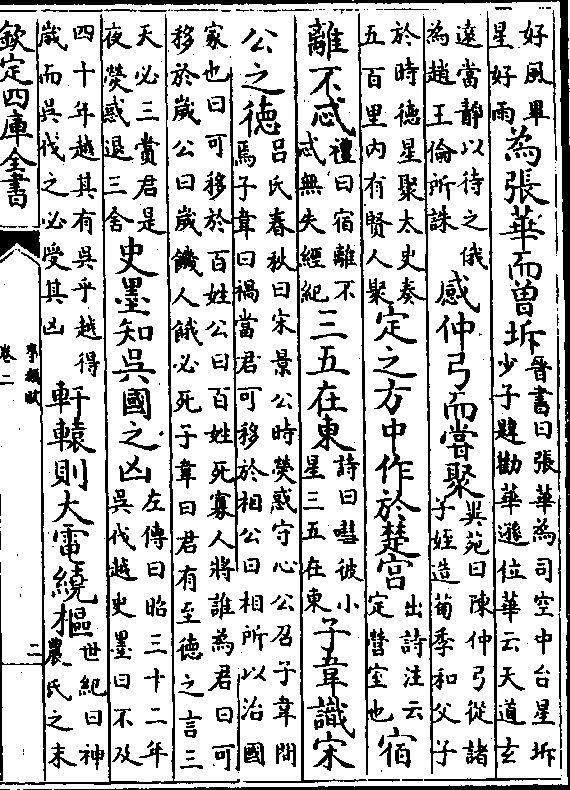 好風畢
星好雨
為張華而曾坼
晉書曰張華為司空中台星坼
少子韙勸華遜位華云天道玄
遠當靜以待之俄
為趙王倫所誅
感仲弓而嘗聚
異苑曰陳仲弓從諸
子姪造荀季和父子
於時德星聚太史奏
五百里內有賢人聚
定之方中作於楚宮
出詩注云
定營室也
宿
離不忒
禮曰宿離不
忒無失經紀
三五在東
詩曰嘒彼小
星三五在東
子韋識宋
公之德
呂氏春秋曰宋景公時熒惑守心公召子韋問
焉子韋曰禍當君可移於相公曰相所以治國
家也曰可移於百姓公曰百姓死寡人將誰為君曰可
移於歲公曰歲饑人餓必死子韋曰君有至德之言三
天必三賞君是
夜熒惑退三舍
史墨知吳國之凶
左傳曰昭三十二年
吳伐越史墨曰不及
四十年越其有吳乎越得
歲而吳伐之必受其凶
軒轅則大電繞樞
世紀曰神
農氏之末
欽定四庫全書
事類賦
卷二
二